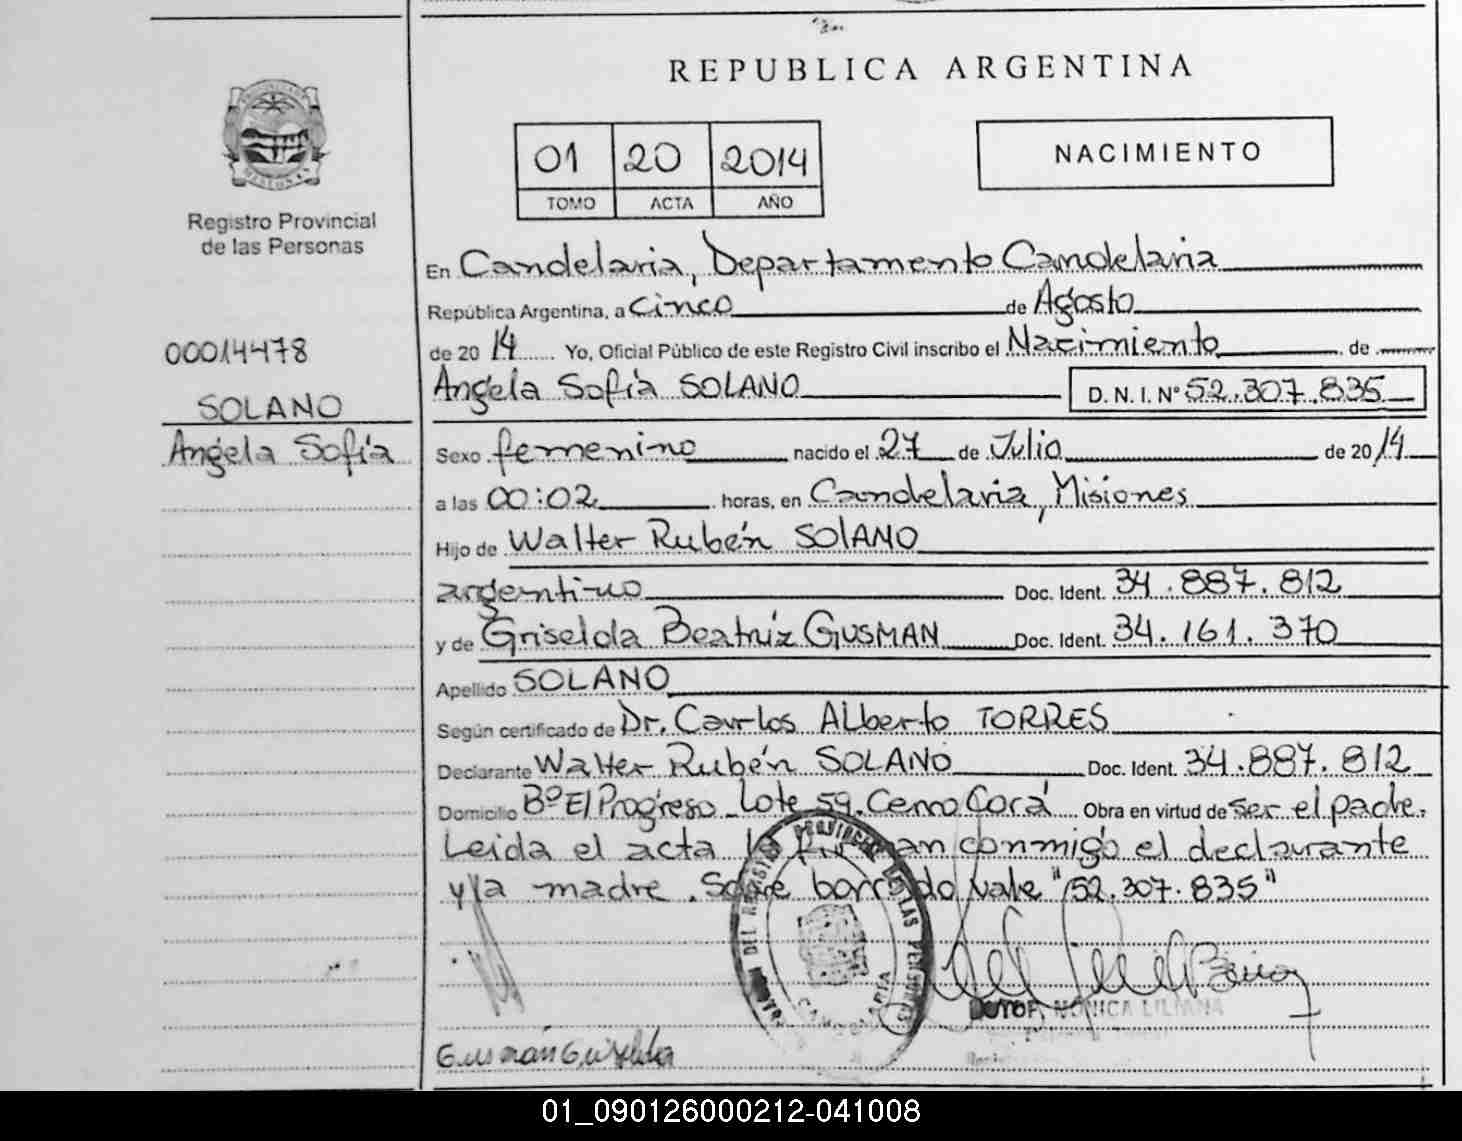 REPUBLICA ARGENTINA
01 20 2014
TOMO ACTA AÑO
NACIMIENTO
MISIONES
Registro Provincial
de las Personas
00014478
SOLANO
Angela Sofía
En Candelaria, Departamento Candelaria
República Argentina, a cinco de Agosto
de 2014 Yo, Oficial Público de este Registro Civil inscribo el Nacimiento de
Angela Sofía SOLANO D. N. I. N° 52.307.835
Sexo femenino nacido el 27 de Julio de 2014
a las 00:02 horas, en Candelaria, Misiones
Hijo de Walter Rubén SOLANO
argentino Doc. Ident. 34.887.812
y de Griselda Beatriz GUSMAN Doc. Ident. 34.161.370
Apellido SOLANO
Según certificado de Dr. Carlos Alberto TORRES
Declarante Walter Rubén SOLANO Doc. Ident. 34.887.812
Domicilio Bº El Progreso Lote 59. Cerro Corá Obra en virtud de ser el padre.
Leida el acta la firman conmigo el declarante
y la madre. Sobre borrado vale "52.307.835"
PROVINCIAL DE LAS PERSONAS
DEL REGISTRO
CANDELARIA
MONICA LILIANA
Gusmán Griselda
01_090126000212-041008